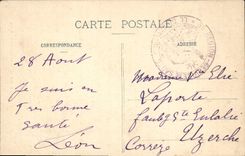 CARTE POSTALE
CORRESPONDANCE
ADRESSE
28 Aout
Je suis en
Tres bonne
santé
Léon
Madame Vve Elie
Laporte
faubg Ste Eulalie
Uzerche
Correze